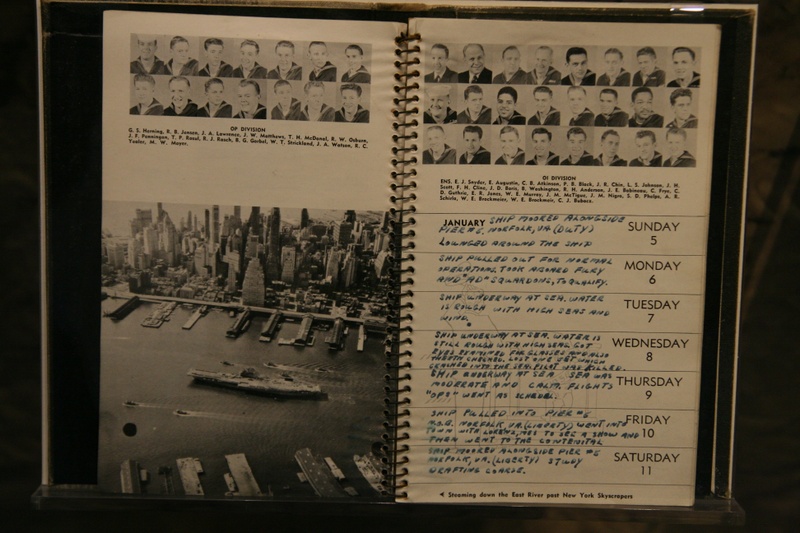 OP DIVISION
G. S. Horning, R. B. Jensen, J. A. Lawrence, J. W. Matthews, T. H. McDanel, R. W. Osborn,
J. F. Pennington, T. P. Rasul, R. J. Rasch, B. G. Gerbel, W. T. Strickland, J. A. Watson, R. C.
Yeater, M. W. Moyer.
OI DIVISION
ENS. E. J. Snyder, E. Augustin, C. B. Atkinson, P. B. Black, J. R. Chin, L. S. Johnson, J. H.
Scott, F. H. Cline, J. D. Born, R. Washington, R. H. Anderson, J. E. Robineau, C. Frye, C.
D. Guthrie, E. R. Jones, W. E. Murray, J. M. McTique, J. M. Nigro, S. D. Phelps, A. R.
Schirle, W. E. Brockmeier, W. E. Brockmuir, C. J. Bubacz.
JANUARY SHIP MOORED ALONGSIDE
PIER #5, NORFOLK, VA. (DUTY)
LOUNGED AROUND THE SHIP
SUNDAY
5
SHIP PULLED OUT FOR NORMAL
OPERATIONS, TOOK ABOARD FURY
AND "AD" SQUARDONS, TO QUALIFY.
MONDAY
6
SHIP UNDERWAY AT SEA. WATER
IS ROUGH WITH HIGH SEAS AND
WIND.
TUESDAY
7
SHIP UNDERWAY AT SEA. WATER IS
STILL ROUGH WITH HIGH SEAS, GOT
EYES EXAMINED FOR GLASSES AND ALSO
TEETH CHECKED. LOST ONE JET WHICH
CRASHED INTO THE SEA. PILOT WAS KILLED.
WEDNESDAY
8
SHIP UNDERWAY AT SEA. SEA WAS
MODERATE AND CALM, FLIGHTS
"OPS" WENT AS SCHEDUEL.
THURSDAY
9
SHIP PULLED INTO PIER #5
N.O.B. NORFOLK, VA. (LIBERTY) WENT INTO
TOWN WITH TO SEE A SHOW AND
THEN WENT TO THE CONTENITAL
FRIDAY
10
SHIP MOORED ALONGSIDE PIER #5
NORFOLK, VA. (LIBERTY) STUDY
DRAFTING COARSE.
SATURDAY
11
◄ Steaming down the East River past New York Skyscrapers